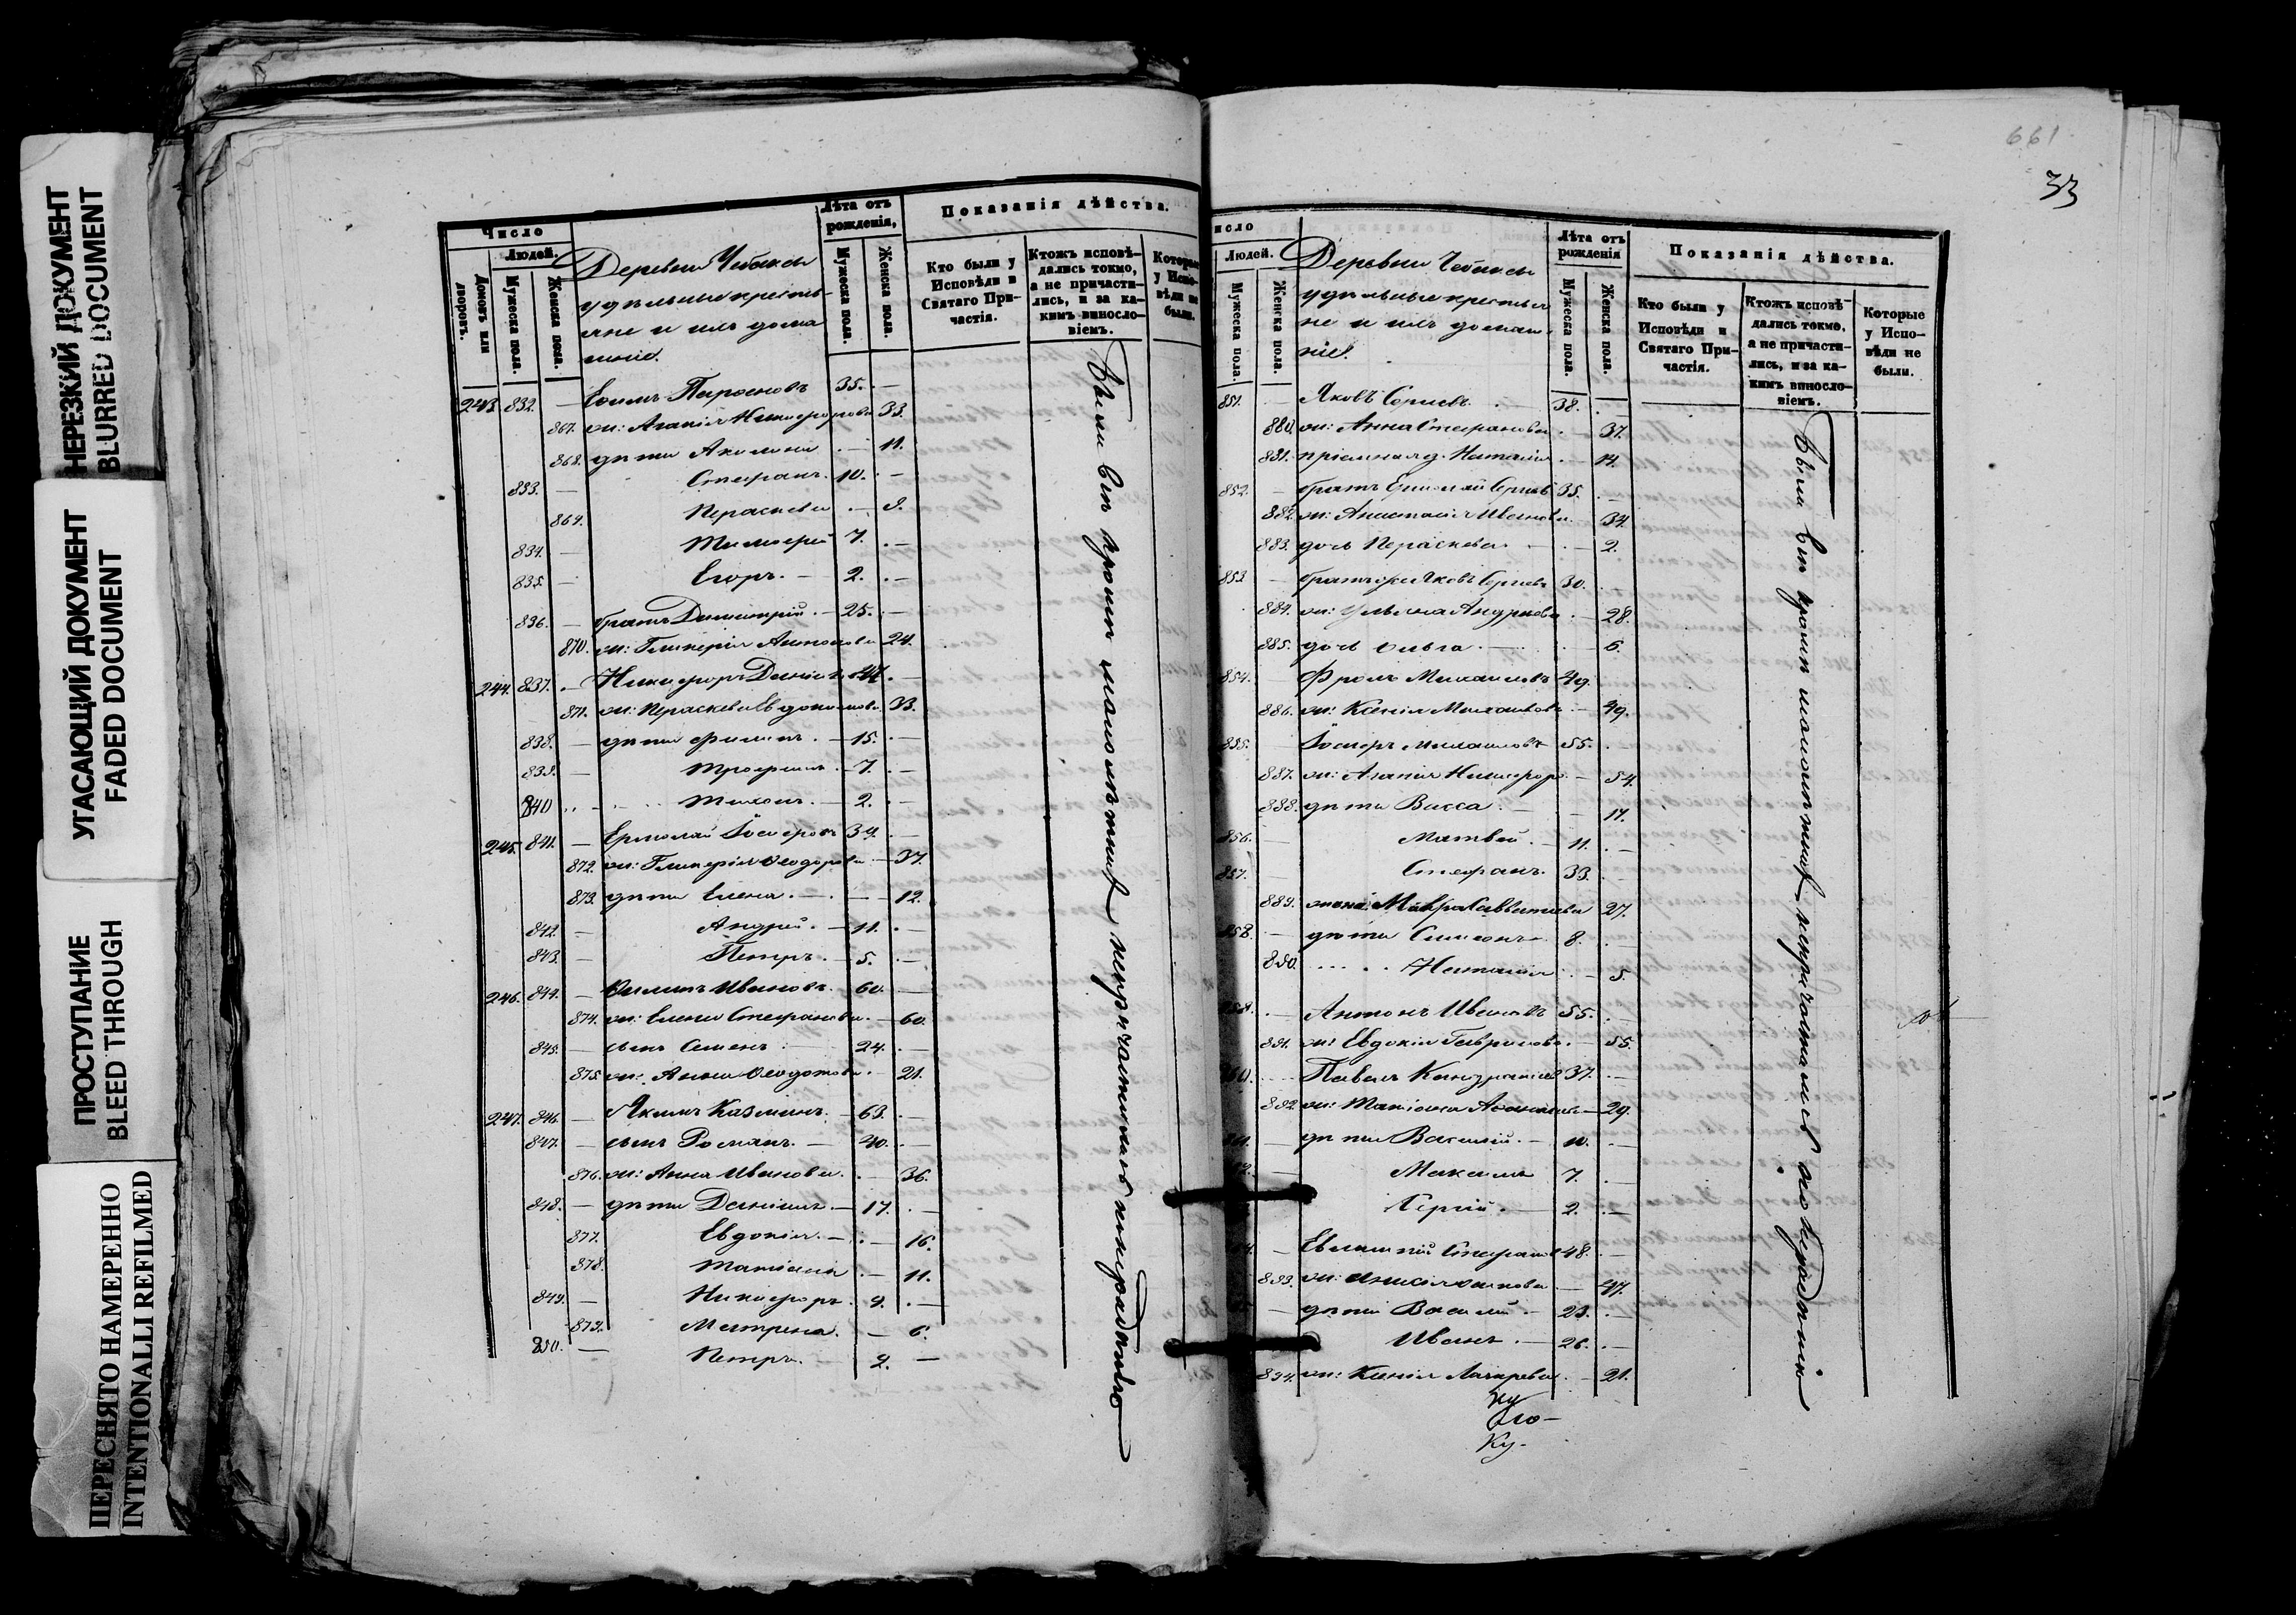 НЕРЕЗКИЙ ДОКУМЕНТ
BLURRED DOCUMENT
УГАСАЮЩИЙ ДОКУМЕНТ
FADED DOCUMENT
ПРОСТУПАНИЕ
BLEED THROUGH
ПЕРЕСНЯТО НАМЕРЕННО
INTENTIONALLI REFILMED
Число
Людей.
Домовъ или дворовъ.
Мужеска пола.
Женска пола.
Деревни Чебаксы
удѣльные крестья-
яне и ихъ дома
шніе.
Лѣта отъ рожденія,
Мужеска пола.
Женска пола.
Показанія дѣйства.
Кто были у Исповѣди и Святаго При-частія.
Ктожъ исповѣ-дались токмо, а не причасти-лись, и за ка-кимъ винословіемъ.
Которые у Испо-вѣди не были.
243. 832. — 35. —
867. ж: Агапія Никифорова 33.
868. дѣти Акилина — 11.
833. — Стефанъ. 10. —
869. Параскева — 8.
834. — Тимофей 7. —
835. — Егоръ. — 2. —
836. — братъ Димитрій. — 25. —
870. ж: Гликерія 24.
244. 837. — Никифоръ —
871. ж: Параскева Евдокимова 33.
838. — дѣти Филипъ. — 15. —
839. — Трофимъ. — 7. —
840 — Тихонъ. — 2. —
245. 841. — Ермолай 39. —
872. ж: Гликерія Ѳеодорова — 37.
873. дѣти Елена. — 12.
842. — Андрей. — 11. —
843. — Петръ. — 5. —
246. 844. — Филипъ Ивановъ. 60. —
874. ж: Елена Стефанова. — 60.
845. — сынъ Семенъ. 24. —
875. ж: Анна Ѳеодотова. — 21.
247. 846. — Якимъ Казминъ. — 63. —
847. — сынъ Романъ. — 40. —
876. ж: Анна Иванова. — 36.
848. — дѣти Даніилъ — 17. —
877. Евдокія. — 16.
878. Татіана — 11.
849. — Никифоръ. 9. —
879. Матрена. — 6.
850. — Петръ. 2. —
Были вси кромѣ малолѣтнихъ, непричастились по нерадѣнію
661
33
Число
Людей.
Мужеска пола.
Женска пола.
Деревни Чебаксы
удѣльные крестья
не и ихъ домаш-
ніе.
Лѣта отъ рожденія
Мужеска пола.
Женска пола.
Показанія дѣйства.
Кто были у Исповѣди и Святаго При-частія.
Ктожъ исповѣ-дались токмо, а не причасти-лись, и за ка-кимъ винословіемъ.
Которые у Испо-вѣди не были.
851. — Яковъ Сергіевъ. 38. —
880. ж: Анна Стефанова — 37.
881. Наталія — 14.
852. — братъ Ермолай 35. —
882. ж: Анастасія Иванова 34.
883. дочь Параскева — 2.
853 — братъ Яковъ Сергіевъ 30. —
884. ж: Ульяна Андреева — 28.
885. дочь Ольга. — 6.
854. — Фролъ Михаиловъ 49.
886. ж: Ксенія Михаилова — 49.
855. — Михаиловъ 55. —
887. ж: Агапія Никифоро — 54.
888. дѣти Васса. — 17.
856. — Матвей — 11. —
857. — Стефанъ. 33. —
889. жена: Мавра Савватиева 27.
858. — дѣти Симеонъ 8. —
890. Наталія — 5.
— Антонъ Ивановъ 55. —
891. ж: Евдокія Гаврилова. — 55.
Павелъ 37. —
892. ж: Татіана — 29.
— дѣти Василій. — 10. —
— Максимъ 7. —
Сергій. 2. —
— Евлампій Стефан 48. —
893. ж: — 47.
— дѣти Василій — 23. —
Иванъ. — 26. —
894. ж: Ксенія Лазарева. — 21.
Были вси кромѣ малолѣтнихъ, непричастились по нерадѣнію
Ку-